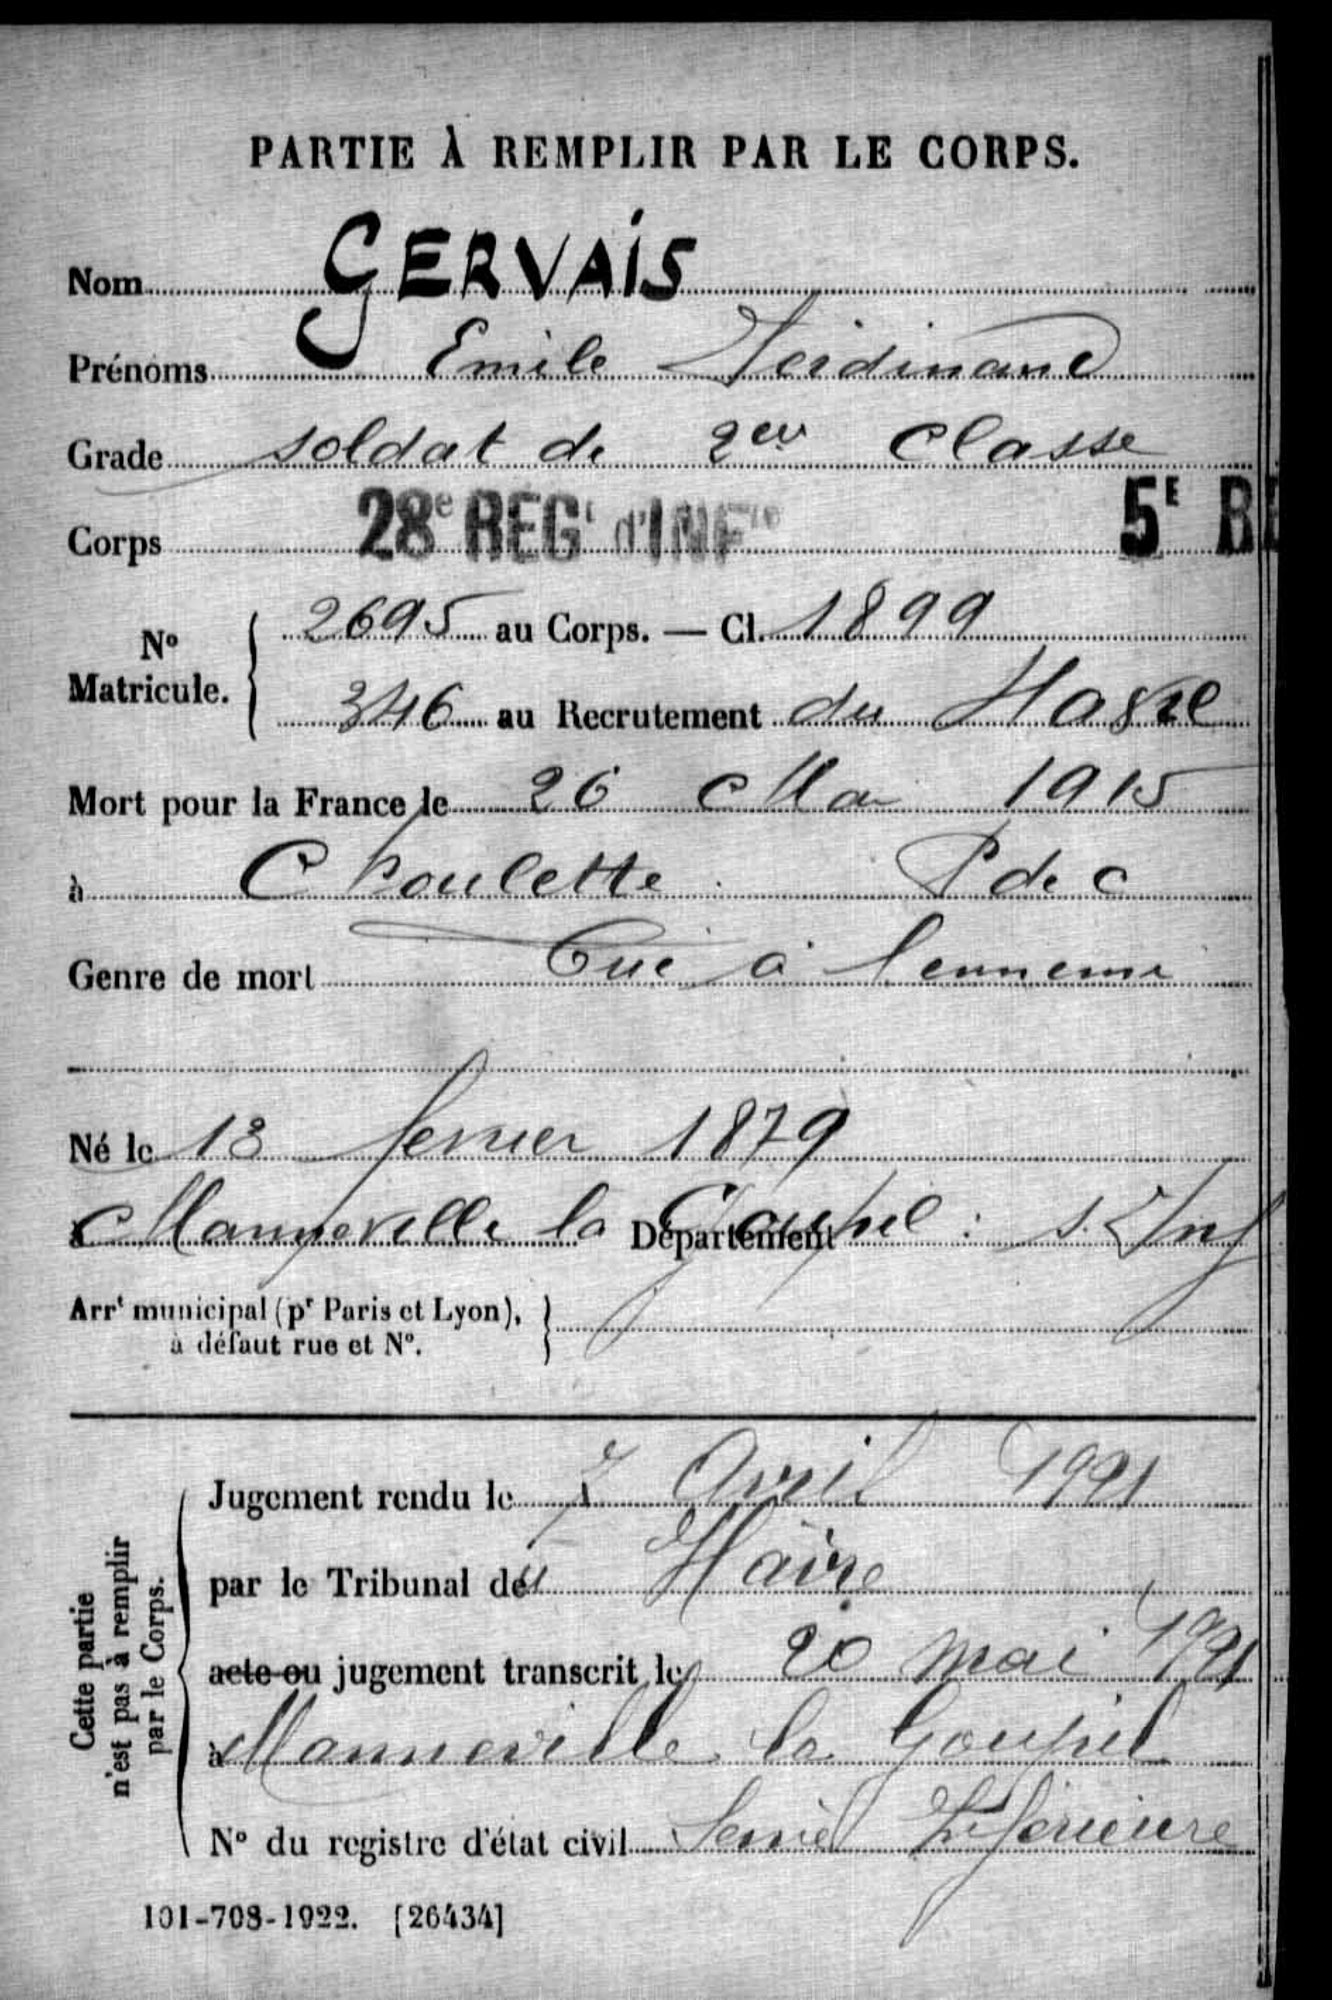 PARTIE À REMPLIR PAR LE CORPS.
Nom GERVAIS
Prénoms Emile Ferdinand
Grade soldat de 2em classe
Corps 28e REGt d'INFie 5E RE
No Matricule. 2695 au Corps. — Cl. 1899
346 au Recrutement du Havre
Mort pour la France le 26 Mai 1915
à Choulette P de C
Genre de mort Tué à lennemi
Né le 13 fevrier 1879
à Manneville la Goupil Département : S. Inf
Arrt municipal (pr Paris et Lyon),
à défaut rue et No.
Cette partie
n'est pas à remplir
par le Corps.
Jugement rendu le 7 Avril 1921
par le Tribunal du Havre
acte ou jugement transcrit le 20 mai 1921
à Manneville la Goupil
No du registre d'état civil Inférieure
101-708-1922. [26434]